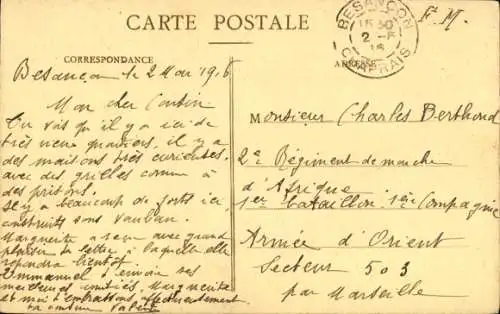 CARTE POSTALE
CORRESPONDANCE
ADRESSE
BESANÇON
15 30
2 - 5
16
F. M.
Besançon le 2 Mai 1916
Mon cher Cousin
Tu vois qu'il y a ici de
très vieux quartiers, il y a
des maisons très curieuses,
avec des grilles comme à
des prisons.
Il y a beaucoup de forts ici,
construits sous Vauban.
Marguerite a reçu avec grand
plaisir ta lettre à laquelle elle
répondra bientôt.
Emmanuel t'envoie ses
meilleures amitiés, Marguerite
et moi t'embrassons affectueusement
ta cousine
Monsieur Charles Berthond
2e Régiment de marche
d'Afrique
1er bataillon. 1ère Compagnie
Armée d'Orient
Secteur 503
par Marseille